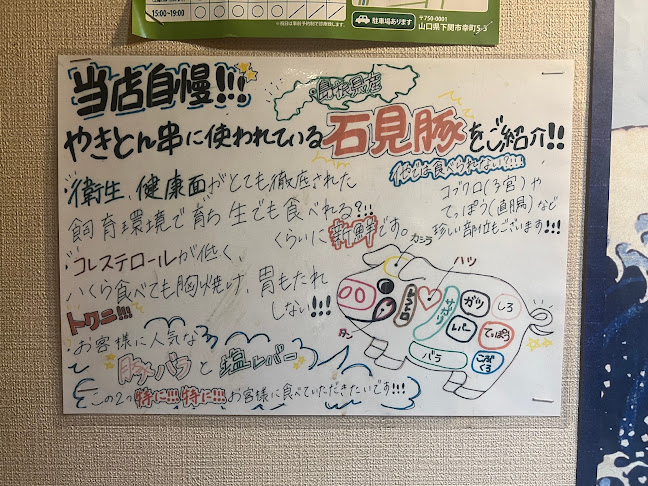 15:00~19:00
駐車場あります
〒750-0001
山口県下関市幸町5-3
当店自慢!!!
島根県産
やきとん串に使われている石見豚をご紹介!!
・衛生、健康面がとても徹底された
飼育環境で育ち生でも食べれる?!!
くらいに新鮮です。
他では食べられない?!!!
コブクロ(子宮)や
てっぽう(直腸)など
珍しい部位もございます!!!
・コレステロールが低く、
いくら食べても胸焼け、胃もたれ
しない!!!
カシラ
ハツ
トントロ
ガツ
シロ
レバー
てっぽう
タン
バラ
こぶくろ
・お客様に人気な
豚バラと塩レバー
この2つ特に!!!特に!!!お客様に食べていただきたいです!!!